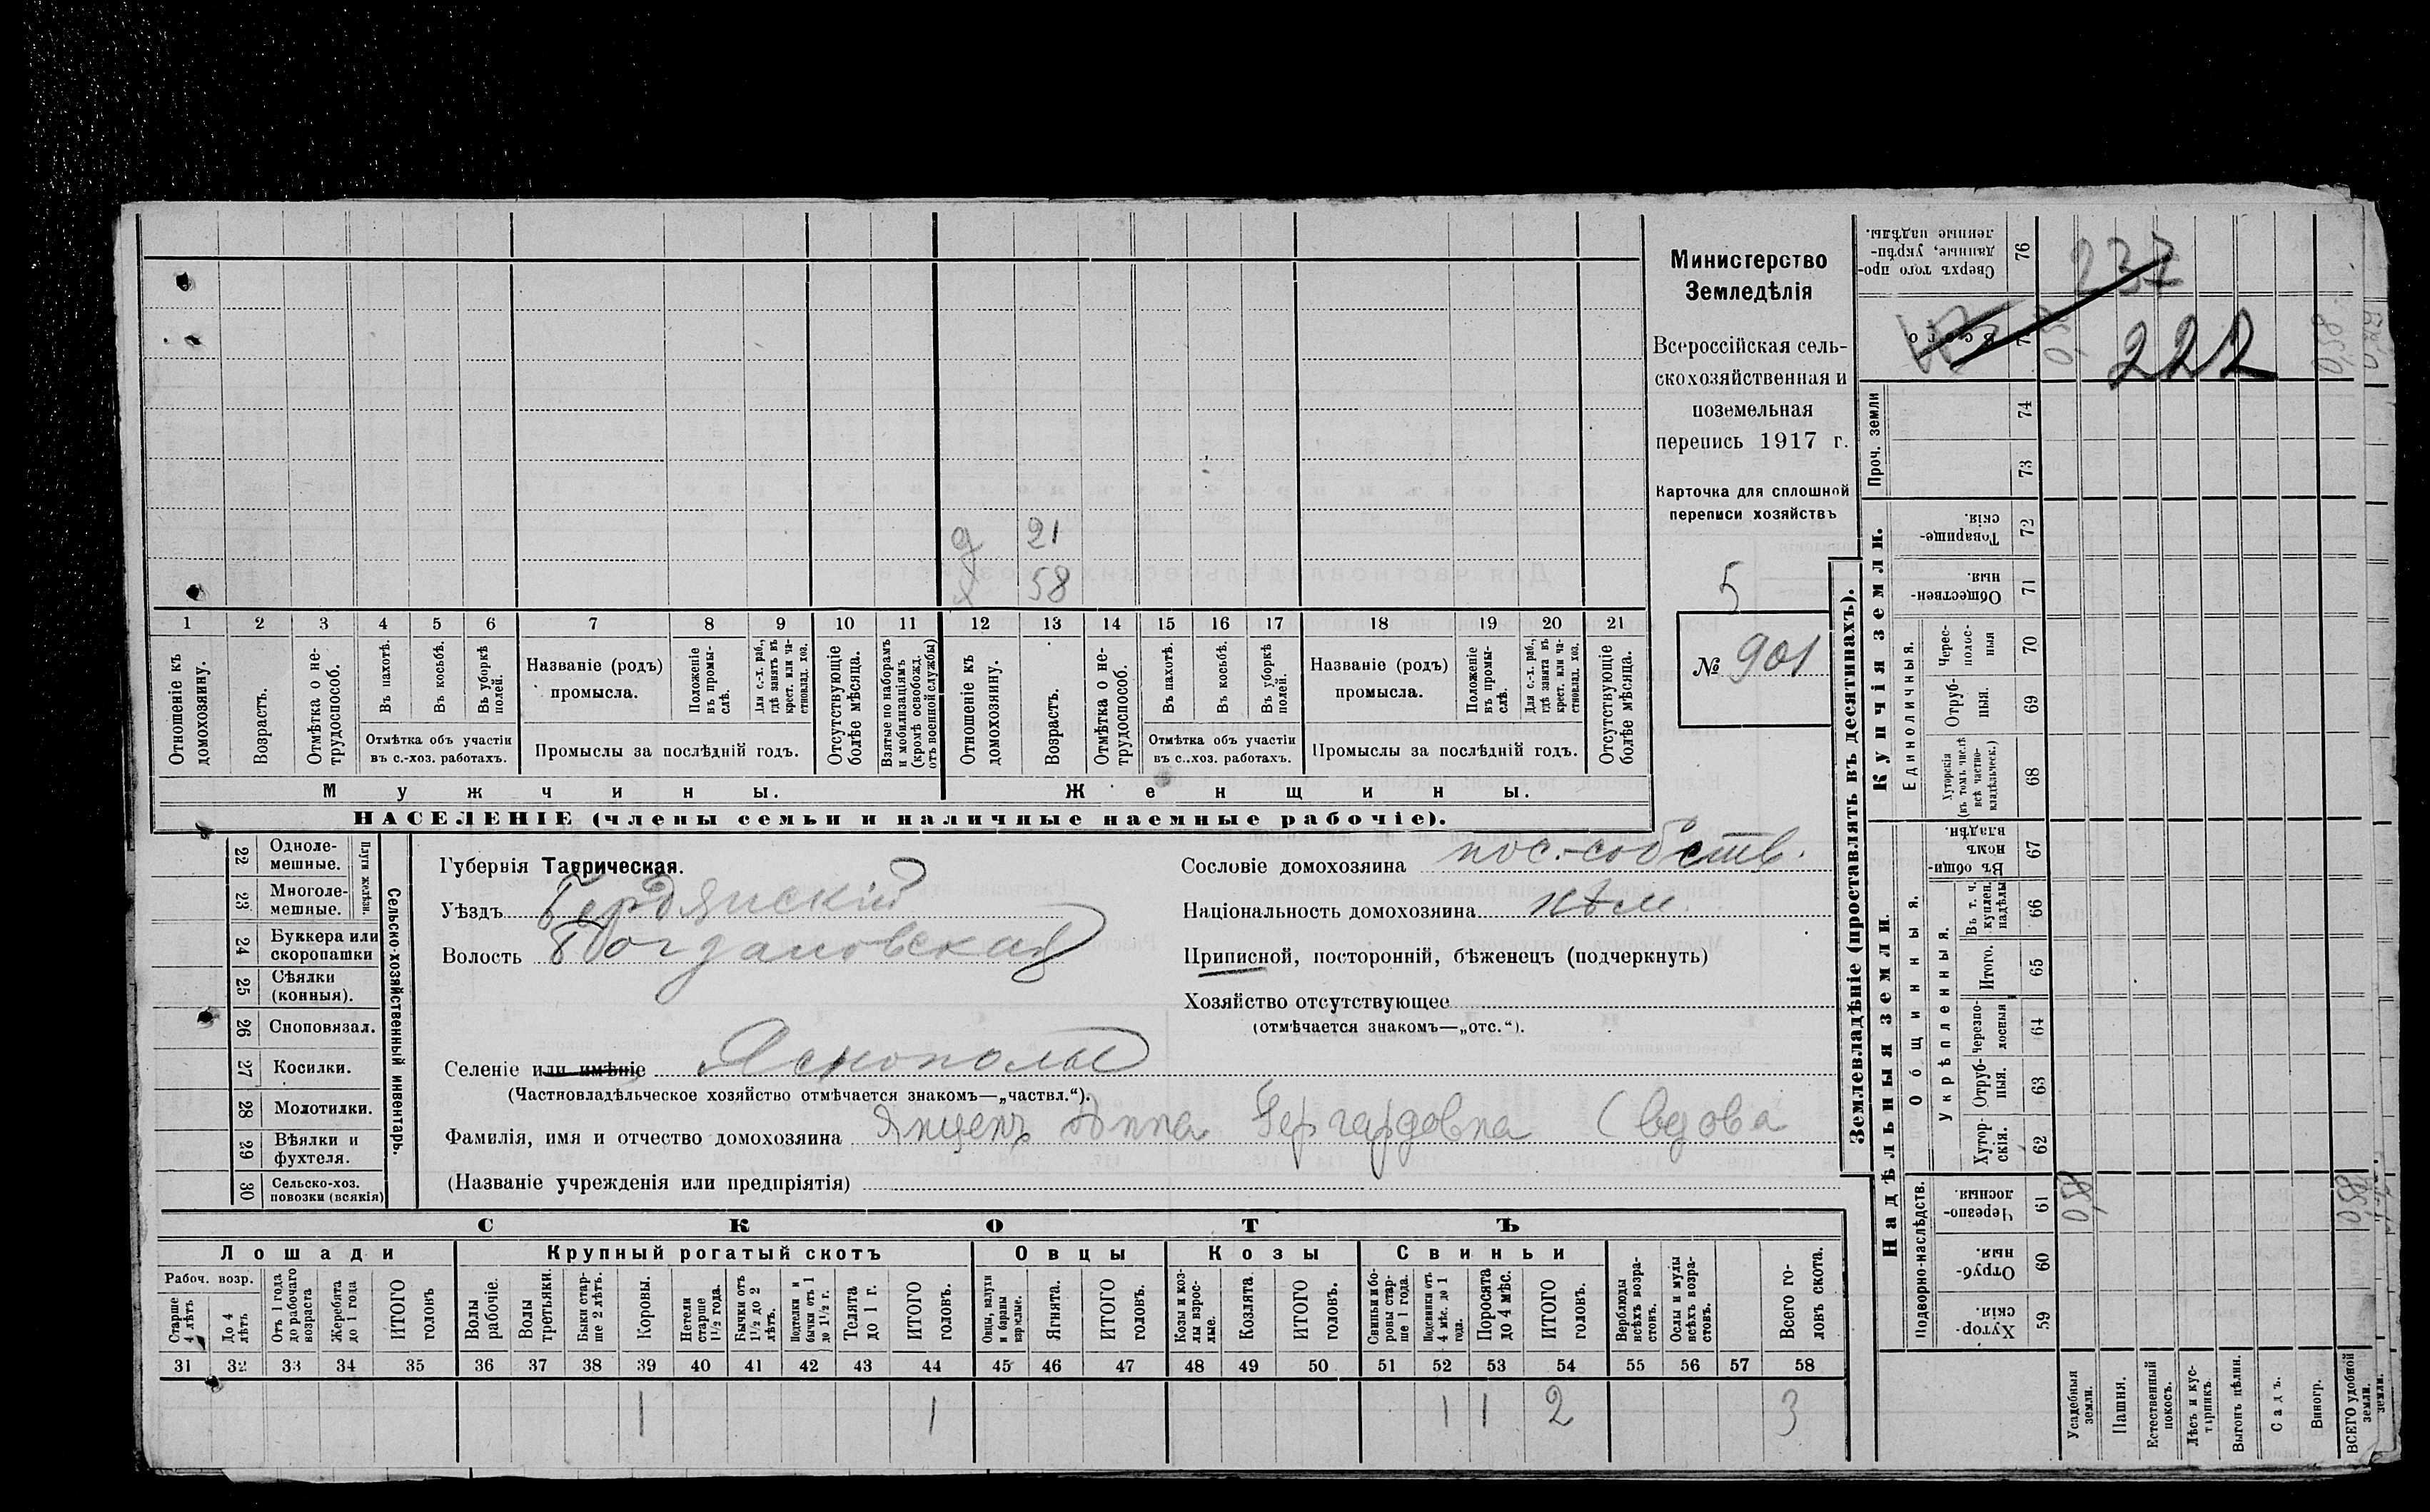 Министерство
Земледѣлія
Всероссійская сель-
скохозяйственная и
поземельная
перепись 1917 г.
Карточка для сплошной
переписи хозяйствъ
5
№ 901
д 21
х 58
1 2 3 4 5 6 7 8 9 10 11 12 13 14 15 16 17 18 19 20 21
Отношеніе къ домохозяину.
Возрастъ.
Отмѣтка о не-трудоспособ.
Въ пахотѣ.
Въ косьбѣ.
Въ уборкѣ полей.
Отмѣтка объ участіи
въ с.-хоз. работахъ.
Названіе (родъ)
промысла.
Положеніе въ промы-слѣ.
Для с.-х. раб., гдѣ занятъ въ крест. или ча-стновлад. хоз.
Промыслы за послѣдній годъ.
Отсутствующіе болѣе мѣсяца.
Взятые по наборамъ и мобилизаціямъ (кромѣ освобожд. отъ военной службы)
Отношеніе къ домохозяину.
Возрастъ.
Отмѣтка о не-трудоспособ.
Въ пахотѣ.
Въ косьбѣ.
Въ уборкѣ полей.
Отмѣтка объ участіи
въ с..хоз. работахъ.
Названіе (родъ)
промысла.
Положеніе въ промы-слѣ.
Для с.-х. раб., гдѣ занята въ крест. или ча-стновлад. хоз.
Промыслы за послѣдній годъ.
Отсутствующіе болѣе мѣсяца.
Мужчины. Женщины.
НАСЕЛЕНІЕ (члены семьи и наличные наемные рабочіе).
Сельско-хозяйственный инвентарь.
Плуги желѣзн.
22 Одноле-мешные.
23 Многоле-мешные.
24 Буккера или скоропашки
25 Сѣялки (конныя).
26 Сноповязал.
27 Косилки.
28 Молотилки.
29 Вѣялки и фухтеля.
30 Сельско-хоз. повозки (всякія)
Губернія Таврическая.
Уѣздъ Бердянскій
Волость Богдановская
Селеніе или имѣніе Яснополье
(Частновладѣльческое хозяйство отмѣчается знакомъ—„частвл.“).
Фамилія, имя и отчество домохозяина Янценъ Анна Гергардовна (вдова
(Названіе учрежденія или предпріятія)
Сословіе домохозяина пос.-собств.
Національность домохозяина нѣм.
Приписной, посторонній, бѣженецъ (подчеркнуть)
Хозяйство отсутствующее
(отмѣчается знакомъ—„отс.“).
СКОТЪ
Лошади Крупный рогатый скотъ Овцы Козы Свиньи
Рабоч. возр.
Старше 4 лѣтъ
До 4 лѣтъ
Отъ 1 года до рабочаго возраста
Жеребята до 1 года
ИТОГО головъ
Волы рабочіе.
Волы третьяки.
Быки стар-ше 2 лѣтъ.
Коровы.
Нетели старше 1½ года.
Бычки отъ 1½ до 2 лѣтъ.
Подтелки и бычки отъ 1 до 1½ г.
Телята до 1 г.
ИТОГО головъ.
Овцы, валухи и бараны взрослые.
Ягнята.
ИТОГО головъ.
Козы и коз-лы взрос-лые.
Козлята.
ИТОГО головъ.
Свиньи и бо-ровы стар-ше 1 года.
Подсвинки отъ 4 мѣс. до 1 года.
Поросята до 4 мѣс.
ИТОГО головъ.
Верблюды всѣхъ возра-стовъ.
Ослы и мулы всѣхъ возра-стовъ.
Всего го-ловъ скота.
31 32 33 34 35 36 37 38 39 40 41 42 43 44 45 46 47 48 49 50 51 52 53 54 55 56 57 58
1 1 1 1 2 3
Землевладѣніе (проставлять въ десятинахъ).
Купчія земли.
Надѣльныя земли.
Сверхъ того про-данные, укрѣп-ленные надѣлы. 76
237
Всего 75
222
Проч. земли 74 73
Товарище-скія. 72
Обществен-ныя. 71
Единоличныя.
Черес-полос-ныя 70
Отруб-ныя. 69
Хуторскія (въ томъ числѣ всѣ частно-владѣльческ.) 68
Общинныя.
Въ общин-номъ владѣн. 67
Укрѣпленныя.
Въ т. ч. куплен. надѣлы 66
Итого. 65
Черезпо-лосныя 64
Отруб-ныя. 63
Хутор-скія. 62
Подворно-наслѣдств.
Черезпо-лосныя. 61
Отруб-ныя. 60
Хутор-скія. 59
Усадебныя земли.
Пашня.
Естественный покосъ.
Лѣсъ и кус-тарникъ.
Выгонъ цѣлин.
Садъ.
Виногр.
ВСЕГО удобной земли.